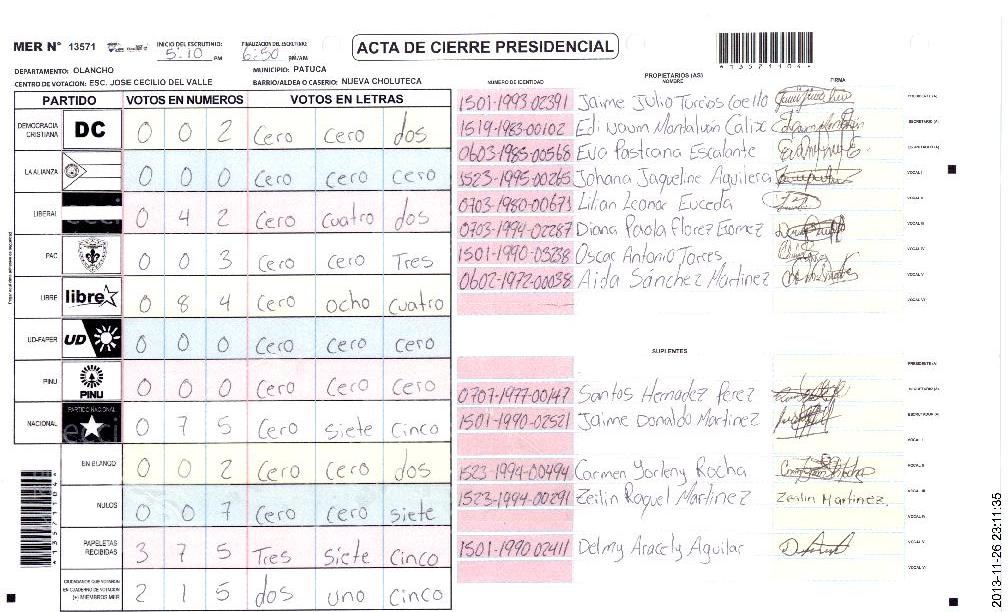 MER Nº 13571 INICIO DEL ESCRUTINIO: 5:10 PM FINALIZACION DEL ESCRUTINIO: 6:50 PM/AM ACTA DE CIERRE PRESIDENCIAL
DEPARTAMENTO: OLANCHO MUNICIPIO: PATUCA
CENTRO DE VOTACION: ESC. JOSE CECILIO DEL VALLE BARRIO/ALDEA O CASERIO: NUEVA CHOLUTECA
PARTIDO VOTOS EN NUMEROS VOTOS EN LETRAS
DEMOCRACIA CRISTIANA DC 0 0 2 Cero Cero dos
LA ALIANZA 0 0 0 Cero Cero Cero
LIBERAL 0 4 2 Cero Cuatro dos
PAC 0 0 3 Cero Cero Tres
LIBRE libre 0 8 4 Cero ocho Cuatro
UD-FAPER UD 0 0 0 Cero Cero Cero
PINU PINU 0 0 0 Cero Cero Cero
NACIONAL PARTIDO NACIONAL 0 7 5 Cero Siete Cinco
EN BLANCO 0 0 2 Cero Cero dos
NULOS 0 0 7 Cero Cero siete
PAPELETAS RECIBIDAS 3 7 5 Tres siete Cinco
CIUDADANOS QUE VOTARON EN CUADERNO DE VOTACION (+) MIEMBROS MER 2 1 5 dos uno Cinco
PROPIETARIOS (AS)
NUMERO DE IDENTIDAD NOMBRE FIRMA
1501-1993-02391 Jaime Julio Turcios Coello
1519-1983-00102 Edi Naum Montalvan Calix SECRETARIO (A)
0603-1985-00568 Eva Pastrana Escalante
1523-1995-00265 Johana Jaqueline Aguilera VOCAL I
0703-1980-00671 Lilian Leonor Euceda VOCAL II
0703-1994-02287 Diana Paola Florez Gomez VOCAL III
1501-1990-03238 Oscar Antonio Torres VOCAL IV
0602-1972-00038 Aida Sánchez Martinez VOCAL V
VOCAL VI
SUPLENTES
PRESIDENTE (A)
0707-1977-00147 Santos Hernadez Perez SECRETARIO (A)
1501-1990-02521 Jaime Donaldo Martinez ESCRUTADOR (A)
VOCAL I
1523-1994-00494 Carmen Yorleny Rocha VOCAL II
1523-1994-00291 Zeilin Raquel Martinez Zeilin Martinez. VOCAL III
VOCAL IV
1501-1990 02411 Delmy Aracely Aguilar VOCAL V
VOCAL VI
2013-11-26 23:11:35